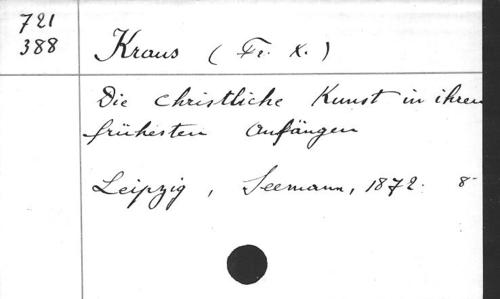 721
388
Kraus (Fr. X.)
Die christliche Kunst in ihren
frühesten Anfängen
Leipzig, Seemann, 1872. 8